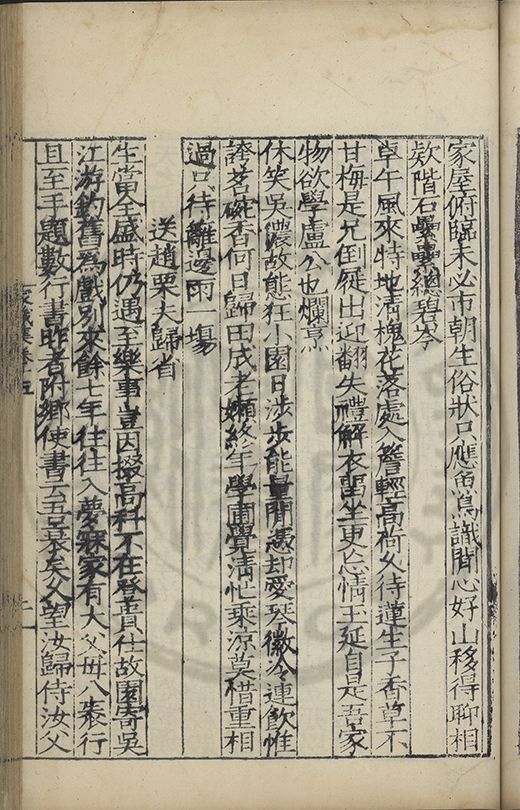 家屋俯臨未必市朝生俗狀只應魚鳥識閒心好山移得聊相
欵階石纍纍總碧岑
草午風來特地清槐花落處入簷輕高荷久待蓮生子香草不
甘梅是兄倒屣出迎翻失禮解衣留坐更忘情王延自是吾家
物欲學盧公也爛烹
休笑吳儂故態狂小園日涉步能量閒憑却愛琴徽冷連飲惟
誇茗碗香何日歸田成老嬾終年學圃覺清忙乘凉莫惜重相
過只待籬邊雨一塲
送趙栗夫歸省
生當全盛時仍遇至樂事豈因掇高科不在登貴仕故園寄吳
江游釣舊為戲別來餘七年往往入夢寐家有大父母八袠行
且至手題數行書昨者附鄉使書云吾㒵矣久望汝歸侍汝父
家藏集卷五